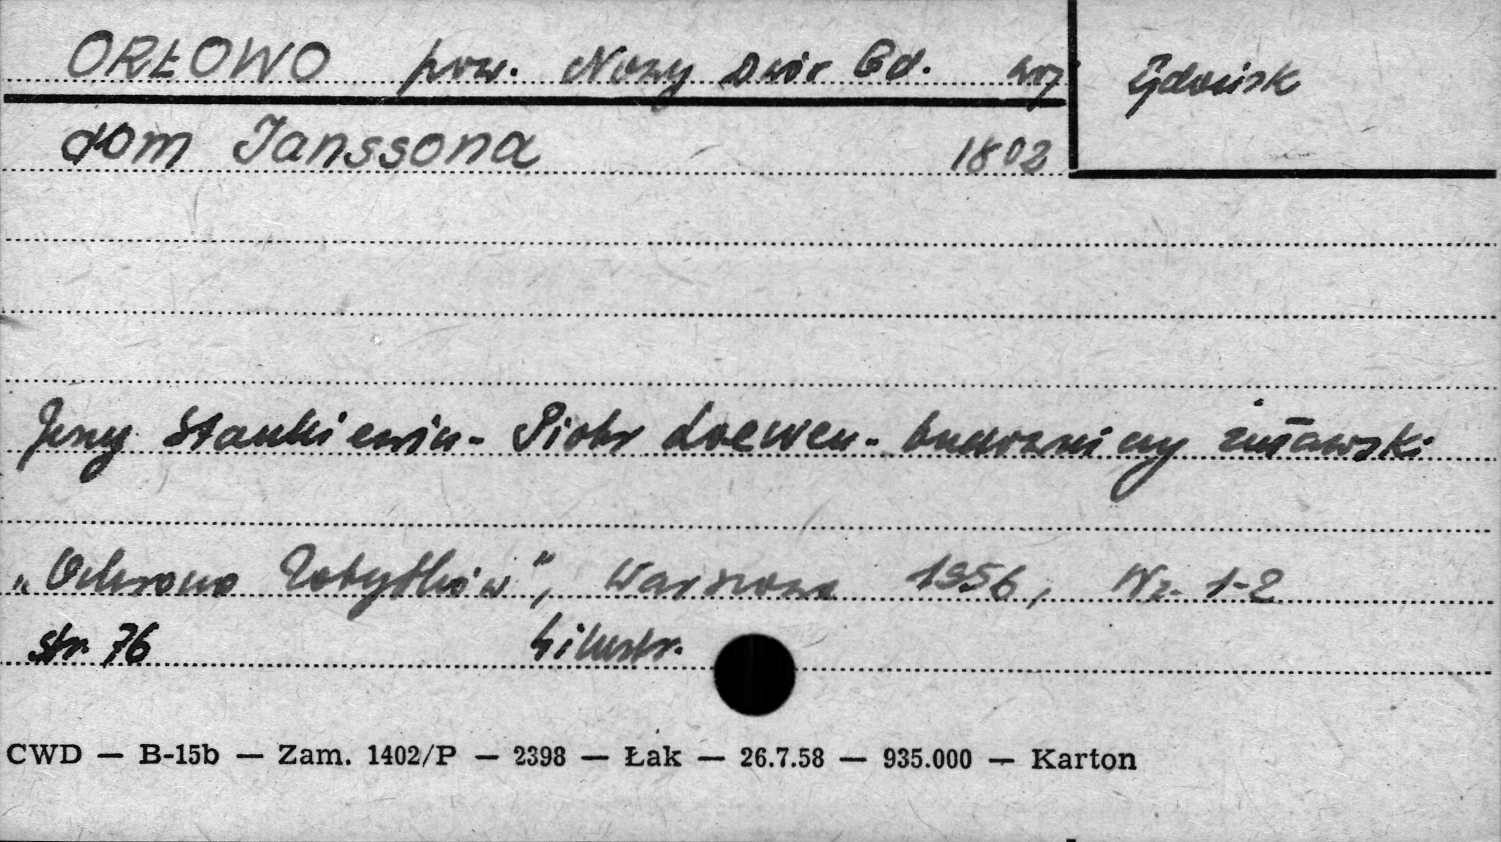 ORŁOWO pow. Nowy Dwór Gd. woj. Gdańsk
dom Janssona 1802
Jerzy Stankiewicz - Piotr Loewen - budowniczy żuławski
„Ochrona Zabytków", Warszawa 1956, Nr. 1-2
str. 76 ilustr.
CWD — B-15b — Zam. 1402/P — 2398 — Łak — 26.7.58 — 935.000 — Karton